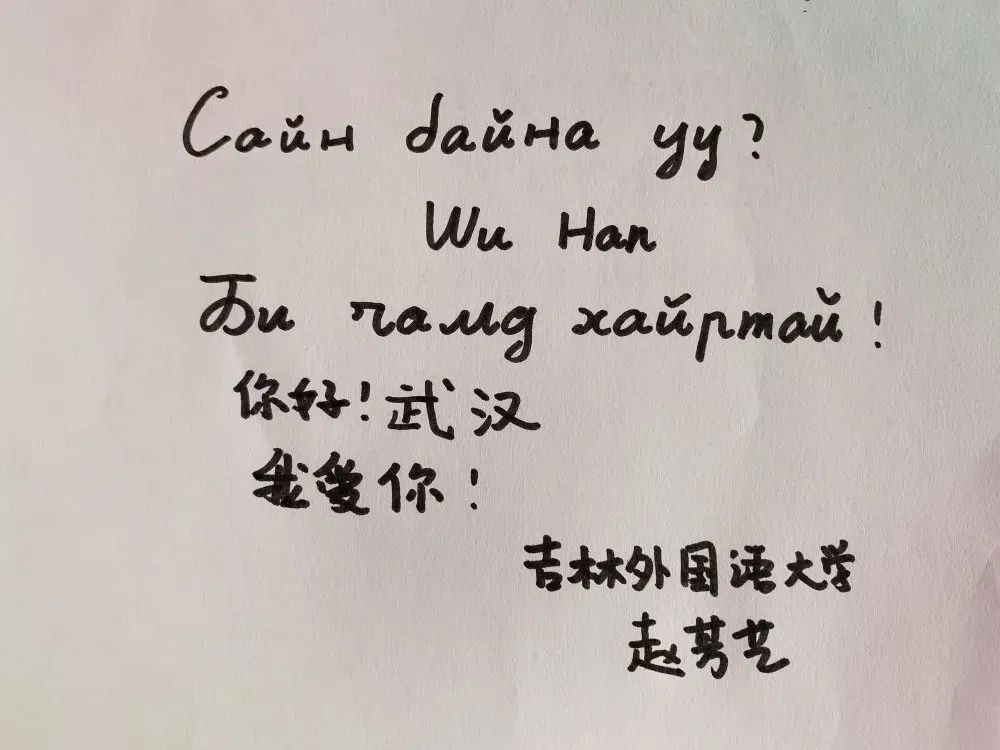 Сайн байна уу?
Wu Han
Би чамд хайртай!
你好!武汉
我爱你!
吉林外国语大学
赵芳艺